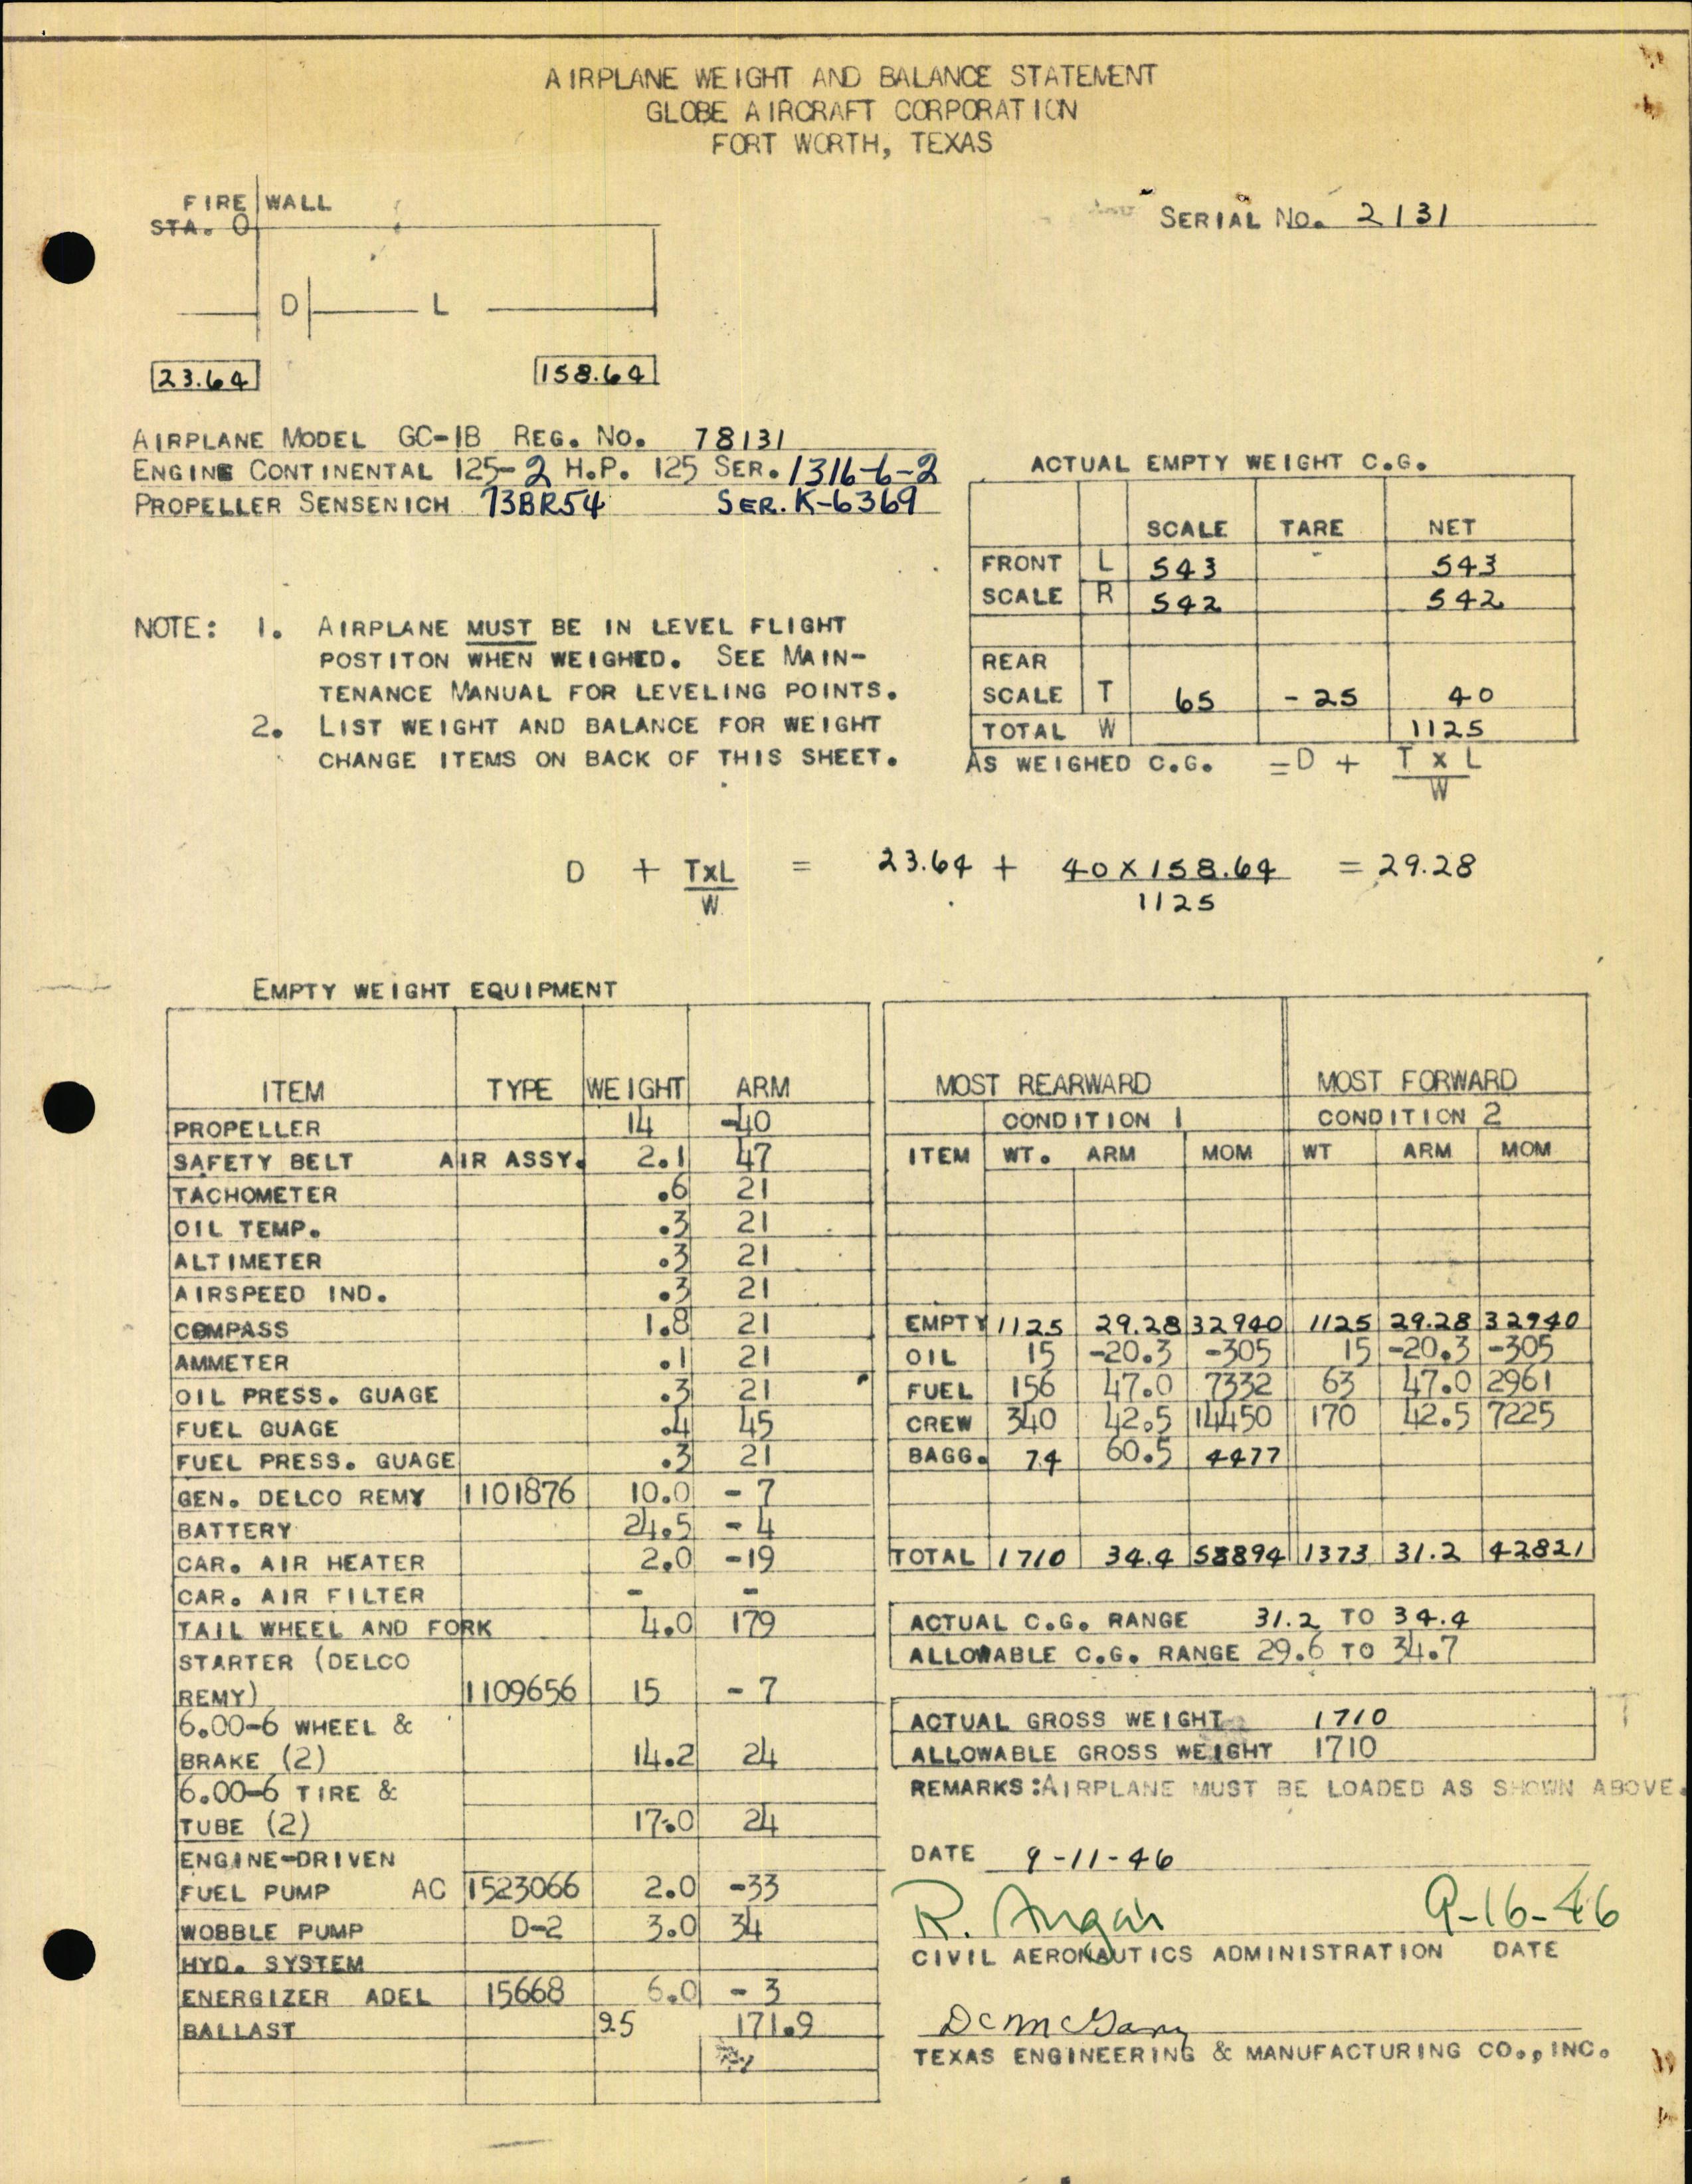 AIRPLANE WEIGHT AND BALANCE STATEMENT
GLOBE AIRCRAFT CORPORATION
FORT WORTH, TEXAS
FIRE WALL
STA. 0
SERIAL NO. 2131
D L
23.64 158.64
AIRPLANE MODEL GC-1B REG. NO. 78131
ENGINE CONTINENTAL 125-2 H.P. 125 SER. 1316-6-2
PROPELLER SENSENICH 73BR54 SER. K-6369
ACTUAL EMPTY WEIGHT C.G.
SCALE TARE NET
FRONT L 543 - 543
SCALE R 542 542
REAR
SCALE T 65 -25 40
TOTAL W 1125
AS WEIGHED C.G. = D + T x L
W
NOTE: 1. AIRPLANE MUST BE IN LEVEL FLIGHT
POSTITON WHEN WEIGHED. SEE MAIN-
TENANCE MANUAL FOR LEVELING POINTS.
2. LIST WEIGHT AND BALANCE FOR WEIGHT
CHANGE ITEMS ON BACK OF THIS SHEET.
D + TxL = 23.64 + 40 X 158.64 = 29.28
W 1125
EMPTY WEIGHT EQUIPMENT
ITEM TYPE WEIGHT ARM
PROPELLER 14 -40
SAFETY BELT AIR ASSY. 2.1 47
TACHOMETER .6 21
OIL TEMP. .3 21
ALTIMETER .3 21
AIRSPEED IND. .3 21
COMPASS 1.8 21
AMMETER .1 21
OIL PRESS. GUAGE .3 21
FUEL GUAGE .4 45
FUEL PRESS. GUAGE .3 21
GEN. DELCO REMY 1101876 10.0 - 7
BATTERY 24.5 - 4
CAR. AIR HEATER 2.0 -19
CAR. AIR FILTER - -
TAIL WHEEL AND FORK 4.0 179
STARTER (DELCO
REMY) 1109656 15 - 7
6.00-6 WHEEL &
BRAKE (2) 14.2 24
6.00-6 TIRE &
TUBE (2) 17.0 24
ENGINE-DRIVEN
FUEL PUMP AC 1523066 2.0 -33
WOBBLE PUMP D-2 3.0 34
HYD. SYSTEM
ENERGIZER ADEL 15668 6.0 - 3
BALLAST 25 171.9
MOST REARWARD MOST FORWARD
CONDITION 1 CONDITION 2
ITEM WT. ARM MOM WT ARM MOM
EMPTY 1125 29.28 32940 1125 29.28 32940
OIL 15 -20.3 -305 15 -20.3 -305
FUEL 156 47.0 7332 63 47.0 2961
CREW 340 42.5 14450 170 42.5 7225
BAGG. 74 60.5 4477
TOTAL 1710 34.4 58894 1373 31.2 42821
ACTUAL C.G. RANGE 31.2 TO 34.4
ALLOWABLE C.G. RANGE 29.6 TO 34.7
ACTUAL GROSS WEIGHT 1710
ALLOWABLE GROSS WEIGHT 1710
REMARKS: AIRPLANE MUST BE LOADED AS SHOWN ABOVE.
DATE 9-11-46
R. 9-16-46
CIVIL AERONAUTICS ADMINISTRATION DATE
TEXAS ENGINEERING & MANUFACTURING CO., INC.